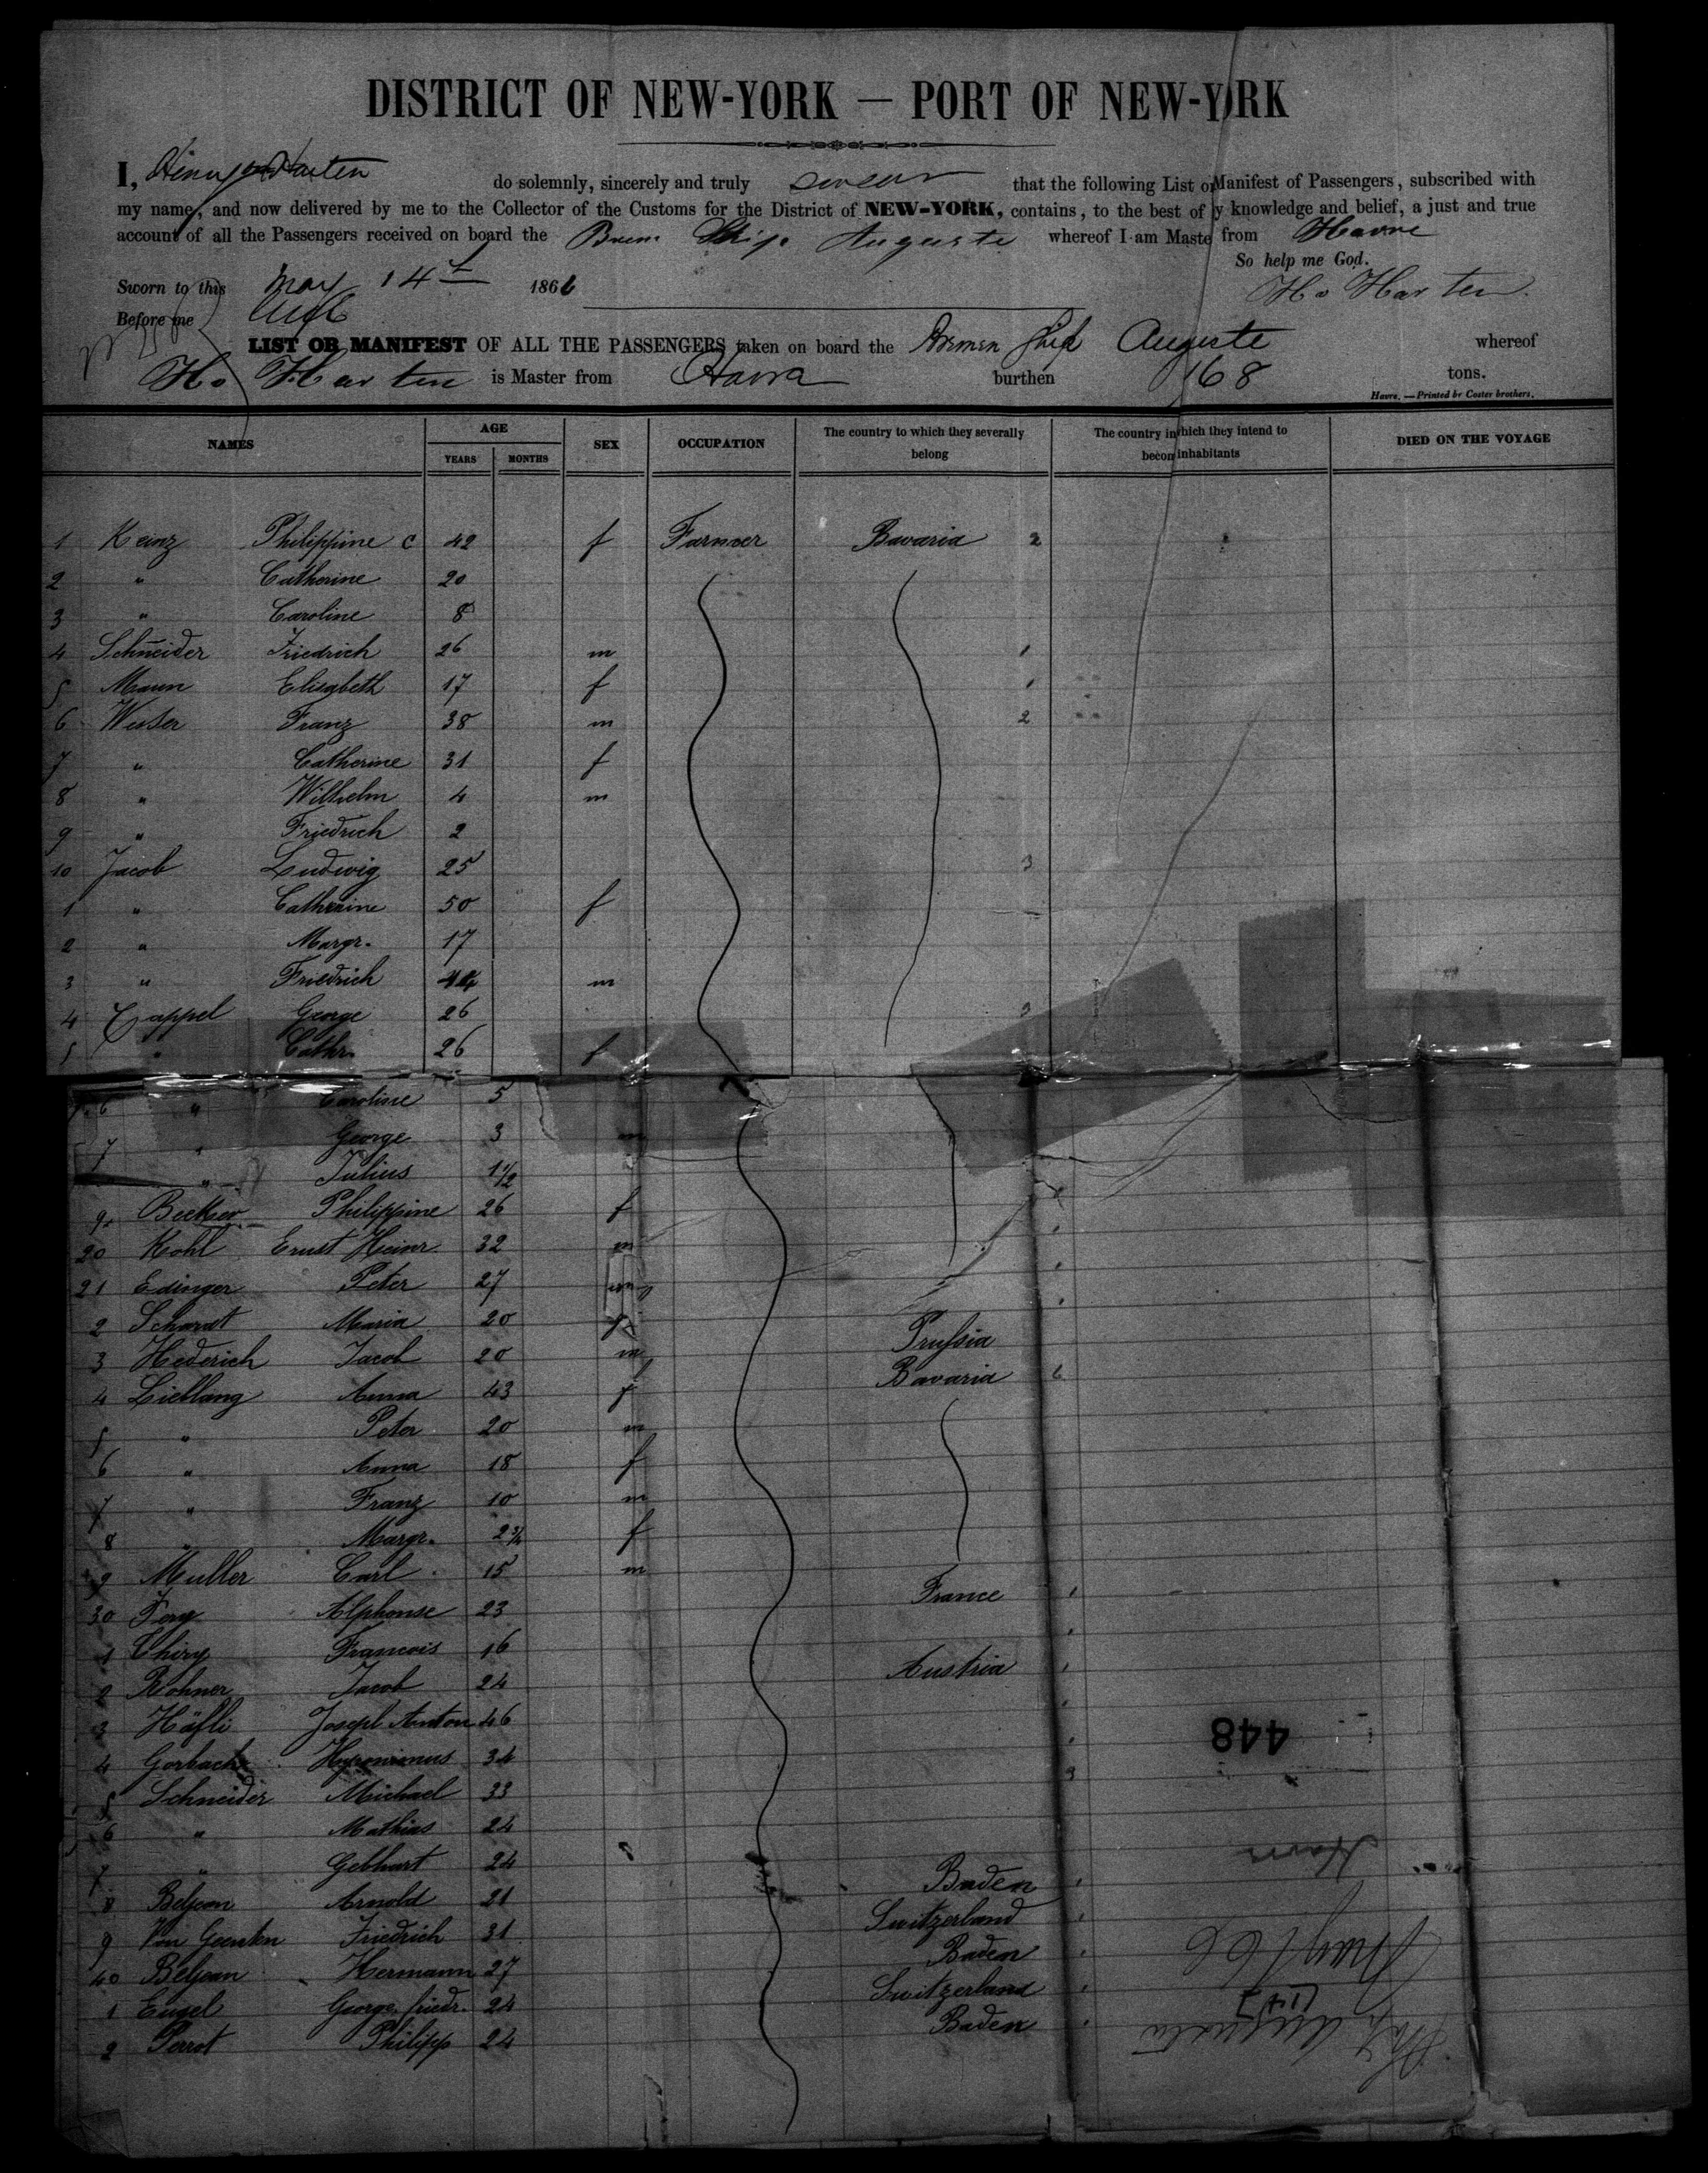 DISTRICT OF NEW-YORK — PORT OF NEW-YORK
I, Harten do solemnly, sincerely and truly swear that the following List or Manifest of Passengers, subscribed with
my name, and now delivered by me to the Collector of the Customs for the District of NEW-YORK, contains, to the best of y knowledge and belief, a just and true
account of all the Passengers received on board the Brem Ship Auguste whereof I am Maste from Havre
So help me God.
Sworn to this May 14th 1866 H. Harten.
Before me
LIST OR MANIFEST OF ALL THE PASSENGERS taken on board the Bremen Ship Auguste whereof
H. Harten is Master from Havra burthen 168 tons.
Havre. — Printed br Coster brothers.
NAMES AGE SEX OCCUPATION The country to which they severally The country in which they intend to DIED ON THE VOYAGE
YEARS MONTHS belong becom inhabitants
1 Keinz Philippine C 42 f Farmer Bavaria 2
2 " Catherine 20
3 " Caroline 8
4 Schneider Friedrich 26 m 1
5 Mann Elisabeth 17 f 1
6 Weber Franz 38 m 2
7 " Catherine 31 f
8 " Wilhelm 4 m
9 " Friedrich 2
10 Jacob Ludwig 25 3
1 " Cathrine 50 f
2 " Margr. 17
3 " Friedrich m
4 Cappel George 26 3
5 " Cathr. 26 f
6 " Caroline 5
7 " George 3 m
" Julius 1 1/2
9 Becker Philippine 26 f
20 Kohl Ernst Heinr 32 m
21 Edinger Peter 27 m
2 Schardt Maria 20 f Prussia
3 Hederich Jacob 20 m Bavaria
4 Lieblang Anna 43 f
5 " Peter 20 m
6 " Anna 18 f
7 " Franz 10 m
8 " Margr. 2 3/4 f
9 Muller Carl 15 m
30 Fery Alphonse 23 France
1 Thiry Francois 16
2 Rohner Jacob 24 Austria
3 Häfli Joseph Anton 46
4 Gorbach Hyeronimus 34
5 Schneider Michael 33 3
6 " Mathias 24
7 " Gebhart 24
8 Beljean Arnold 21 Baden
9 Von Geenten Friedrich 31 Switzerland
40 Beljean Hermann 27 Baden
1 Engel George friedr. 24 Switzerland
2 Perrot Philipp 24 Baden
448
Havre
May 1866
Ship Augusta